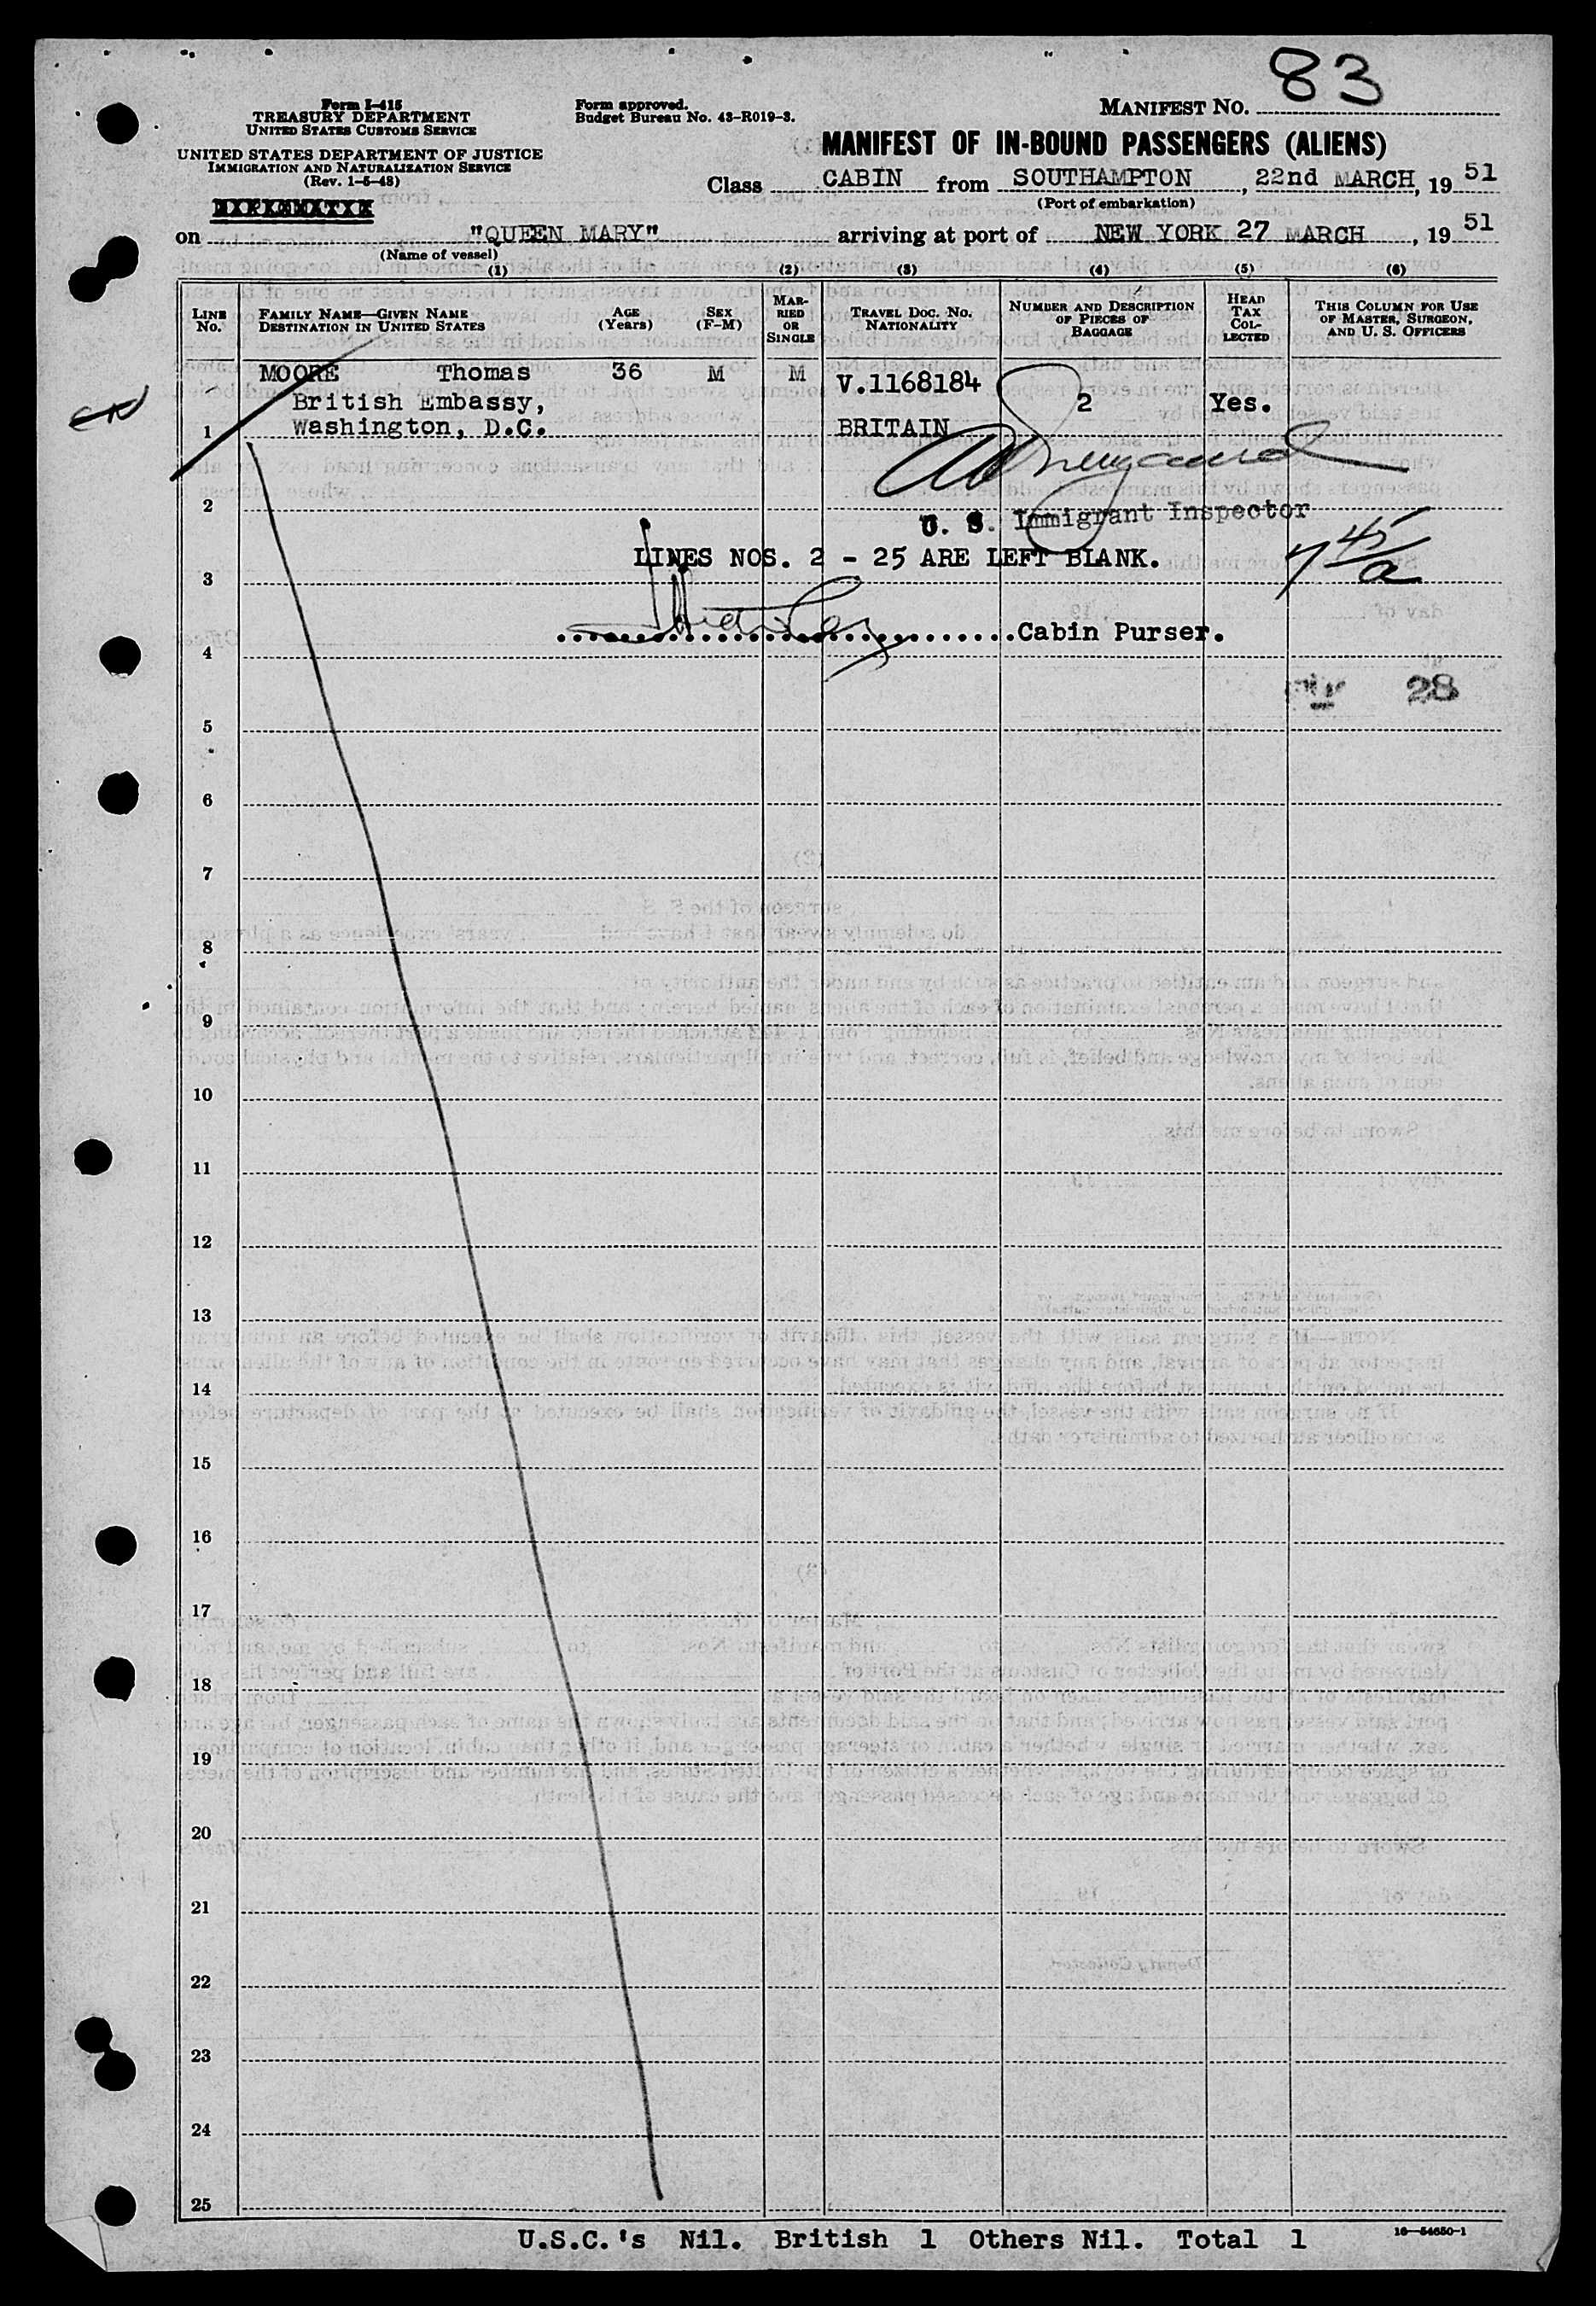 83
Form I-415
TREASURY DEPARTMENT
UNITED STATES CUSTOMS SERVICE
Form approved.
Budget Bureau No. 43-R019-3.
MANIFEST NO.
UNITED STATES DEPARTMENT OF JUSTICE
IMMIGRATION AND NATURALIZATION SERVICE
(Rev. 1-5-48)
MANIFEST OF IN-BOUND PASSENGERS (ALIENS)
Class CABIN from SOUTHAMPTON, 22nd MARCH, 1951
(Port of embarkation)
on "QUEEN MARY" arriving at port of NEW YORK 27 MARCH, 1951
(Name of vessel)
(1) (2) (3) (4) (5) (6)
LINE No. FAMILY NAME—GIVEN NAME DESTINATION IN UNITED STATES AGE (Years) SEX (F-M) MARRIED OR SINGLE TRAVEL DOC. NO. NATIONALITY NUMBER AND DESCRIPTION OF PIECES OF BAGGAGE HEAD TAX COLLECTED THIS COLUMN FOR USE OF MASTER, SURGEON, AND U. S. OFFICERS
MOORE Thomas 36 M M V.1168184 2 Yes.
British Embassy,
1 Washington, D.C. BRITAIN
2
U. S. Immigrant Inspector
LINES NOS. 2 - 25 ARE LEFT BLANK.
3
Cabin Purser.
4
28
5
6
7
8
9
10
11
12
13
14
15
16
17
18
19
20
21
22
23
24
25
U.S.C.'s Nil. British 1 Others Nil. Total 1
16—54650-1